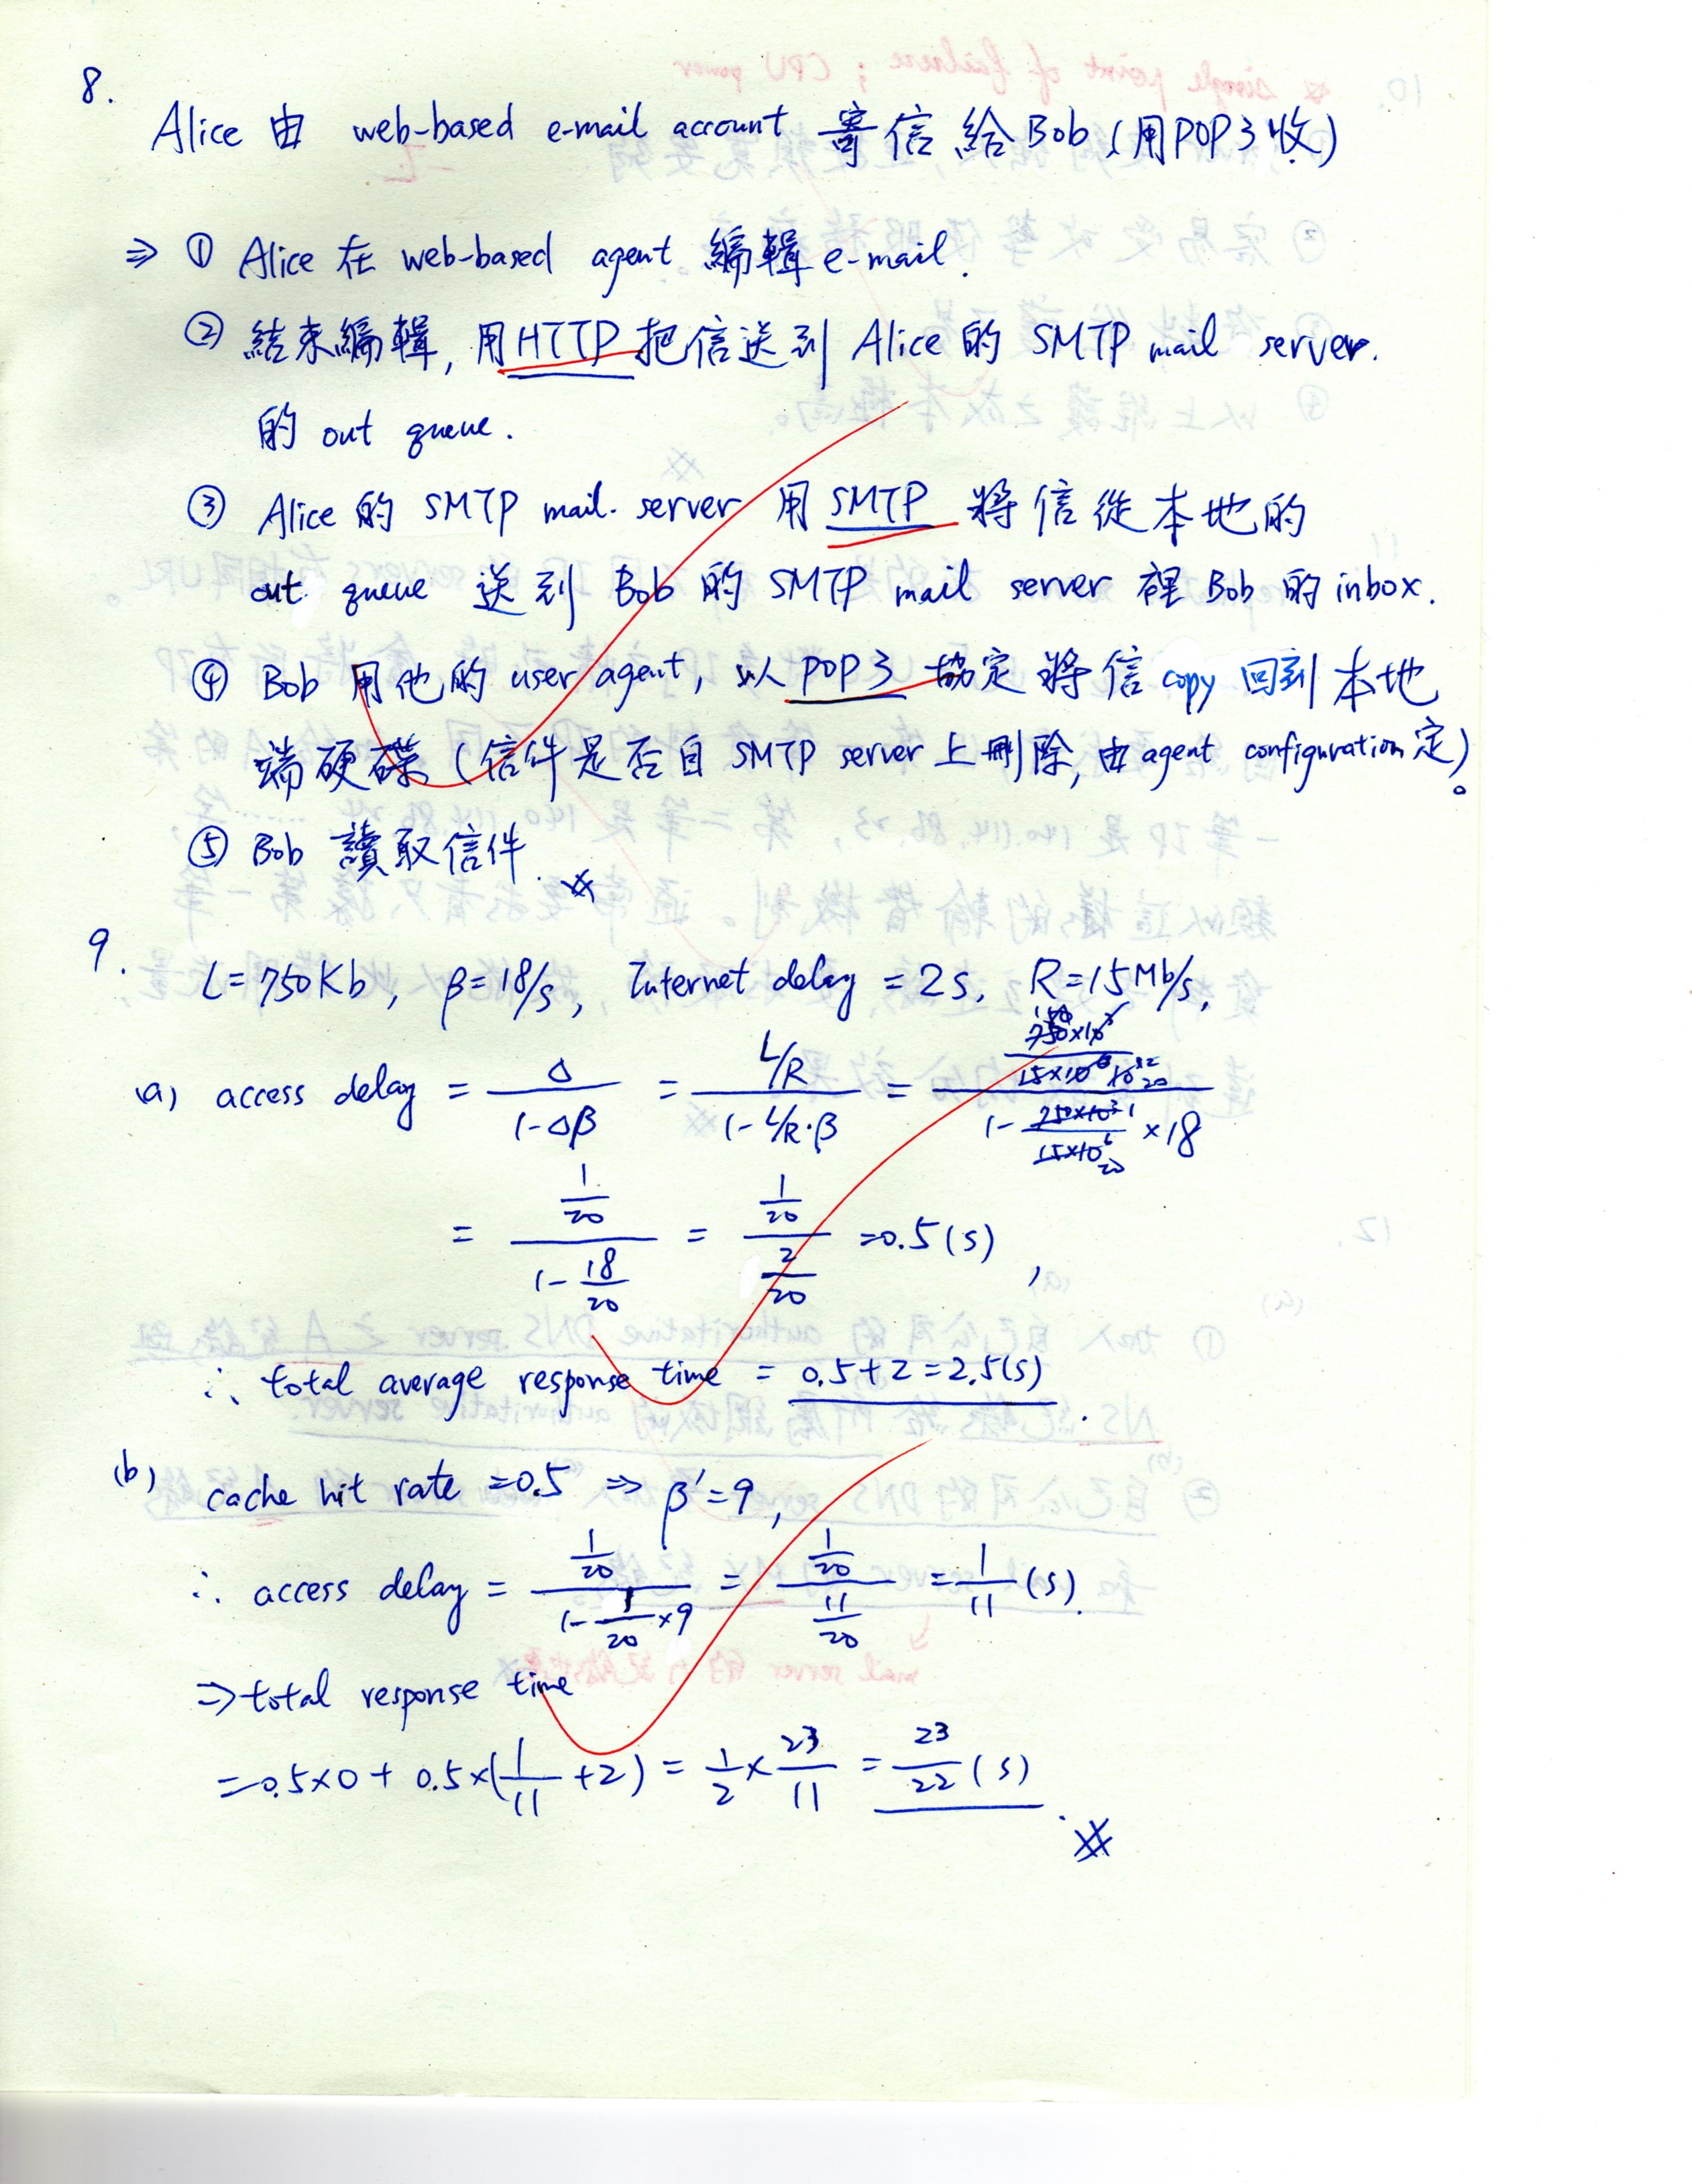 8.
Alice 由 web-based e-mail account 寄信給 Bob (用POP3收)
⇒ ① Alice 在 web-based agent 編輯 e-mail.
② 結束編輯, 用HTTP 把信送到 Alice 的 SMTP mail server.
的 out queue.
③ Alice 的 SMTP mail. server 用 SMTP 將信從本地的
out queue 送到 Bob 的 SMTP mail server 裡 Bob 的 inbox.
④ Bob 用他的 user agent, 以 POP3 協定 將信 copy 回到 本地
端硬碟 (信件是否自 SMTP server 上刪除, 由 agent configuration 定)。
⑤ Bob 讀取信件.
9.
L=750Kb, β=18/s, Internet delay = 2s, R=15Mb/s.
(a) access delay = Δ/(1-Δβ) = (L/R)/(1-L/R·β) = (750×10³/15×10⁶)/(1-(750×10³/15×10⁶)×18)
= (1/20)/(1-18/20) = (1/20)/(2/20) =0.5(s),
∴ total average response time = 0.5+2=2.5(s).
(b) cache hit rate =0.5 ⇒ β'=9,
∴ access delay = (1/20)/(1-1/20×9) = (1/20)/(11/20) =1/11(s).
⇒total response time
=0.5×0+0.5×(1/11+2) = 1/2×23/11 = 23/22(s).